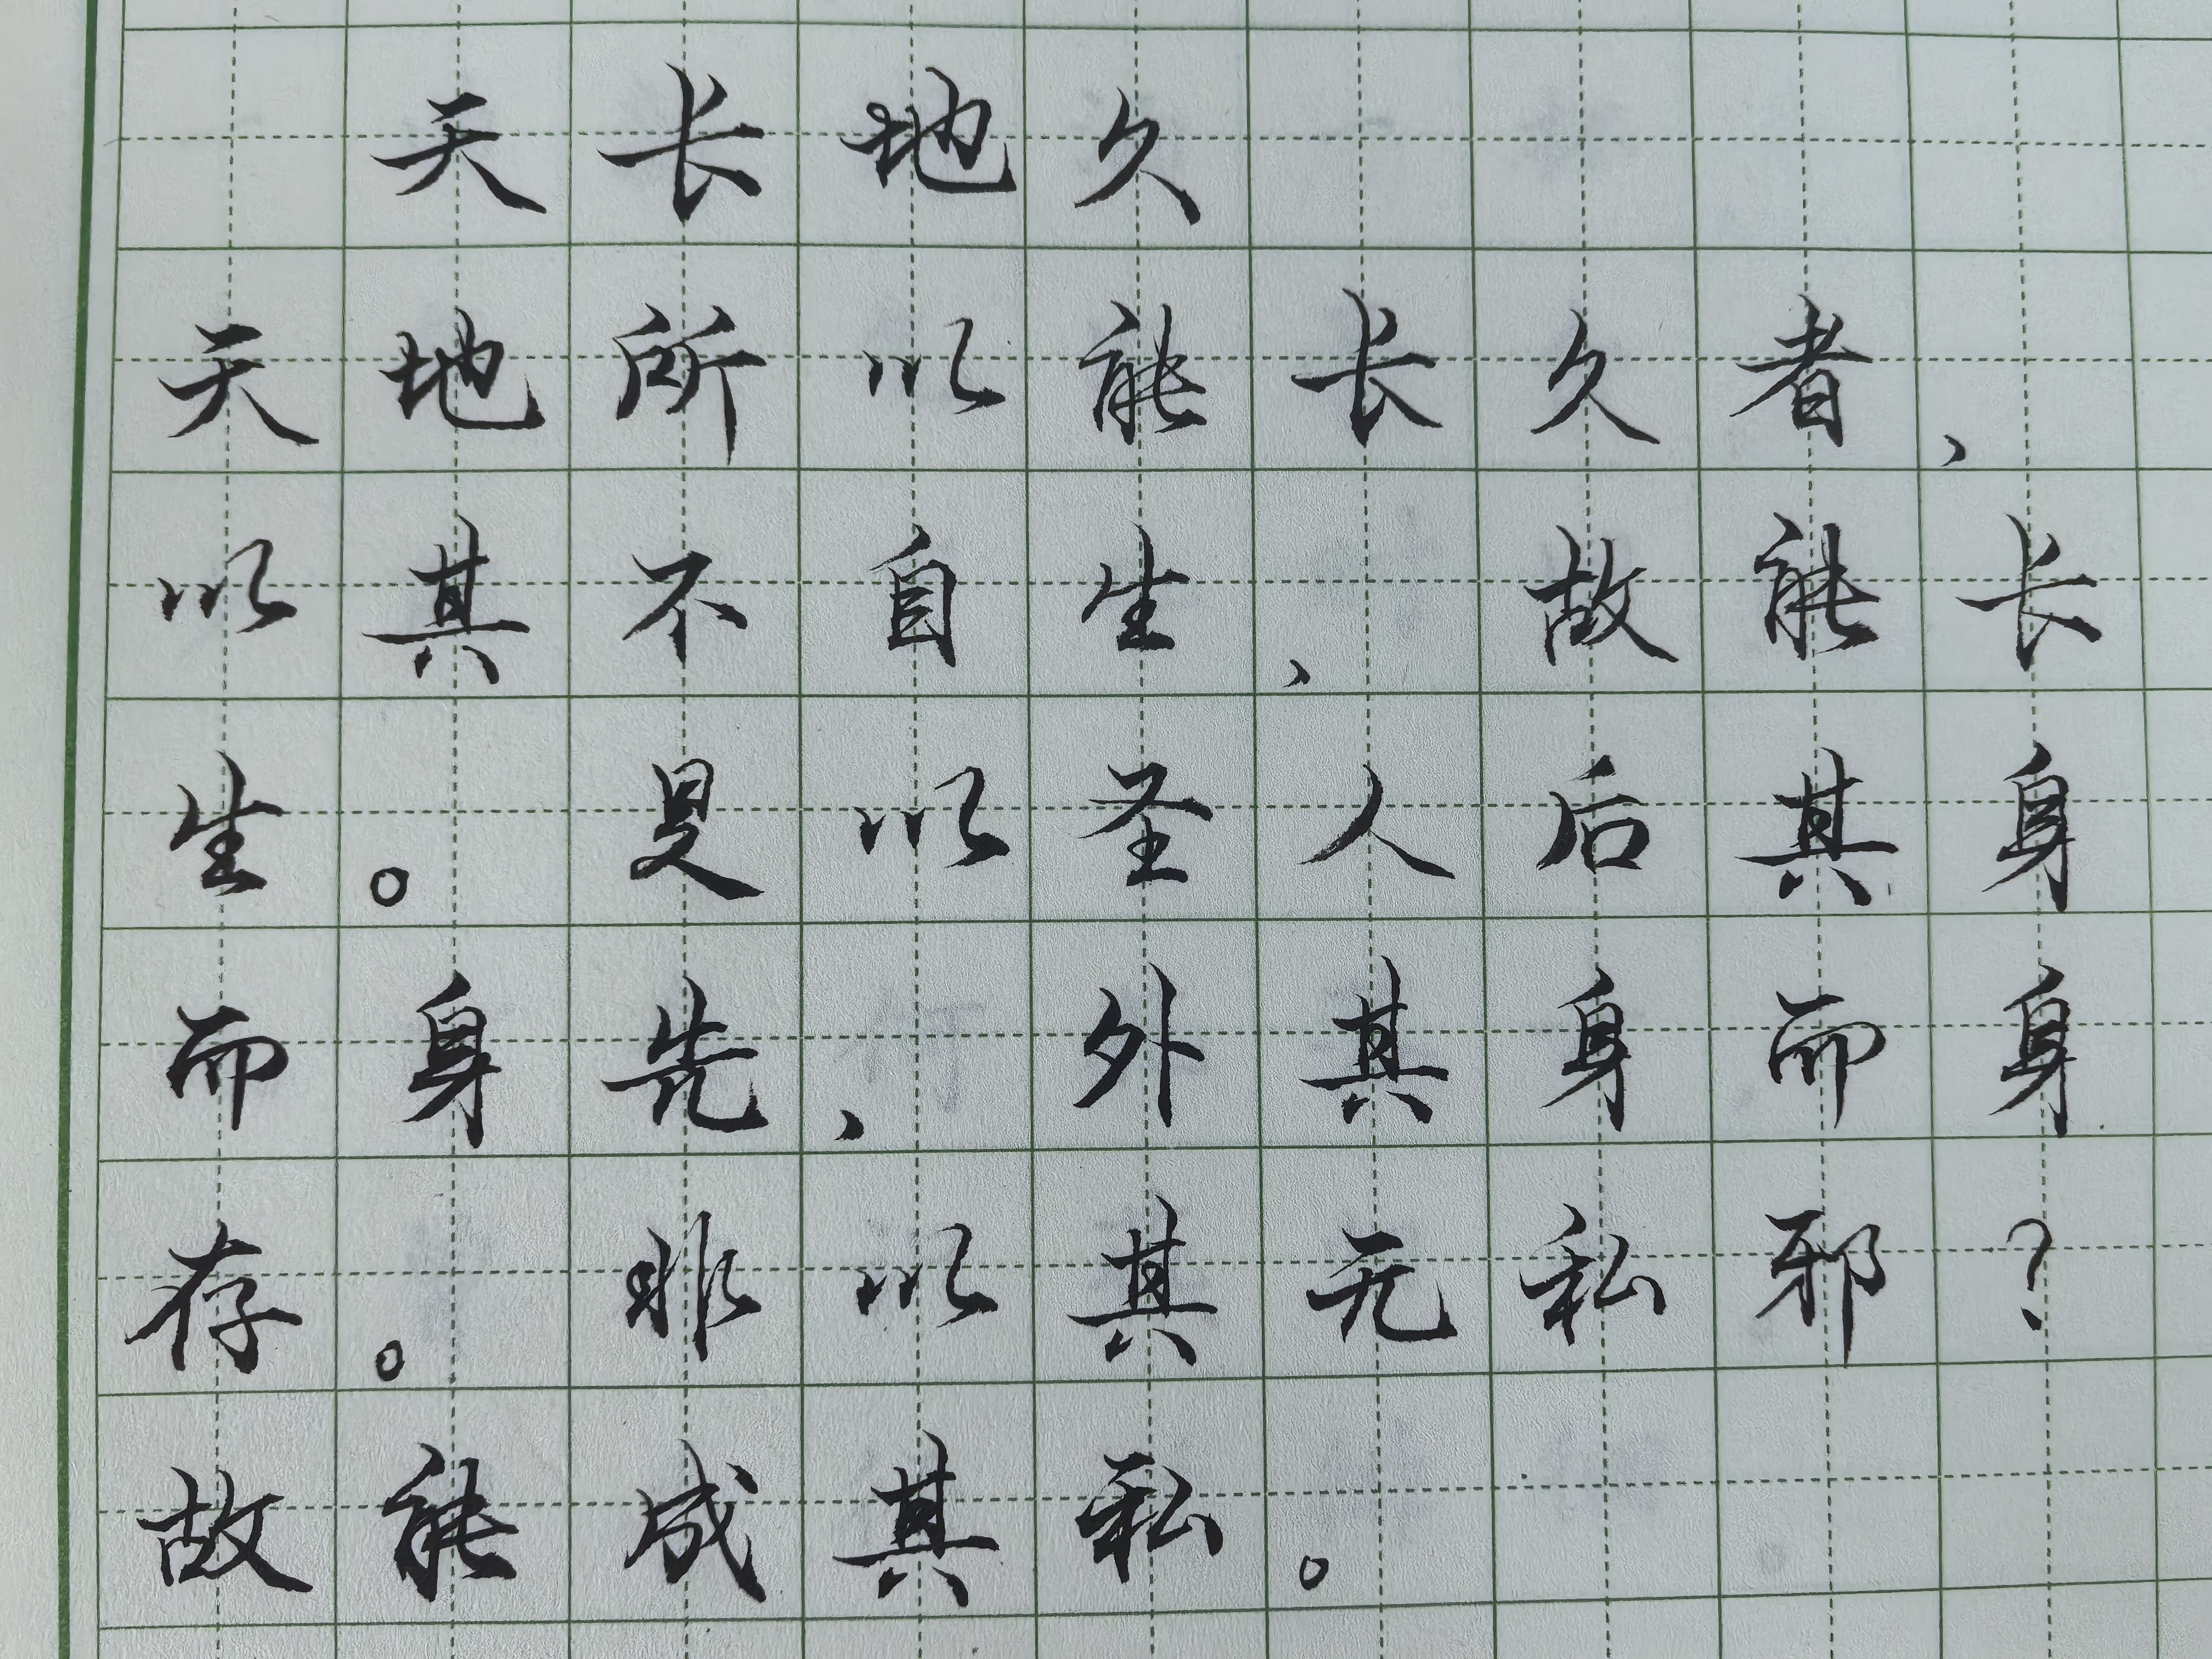 天长地久
天地所以能长久者、
以其不自生、故能长
生。是以圣人后其身
而身先、外其身而身
存。非以其无私邪?
故能成其私。